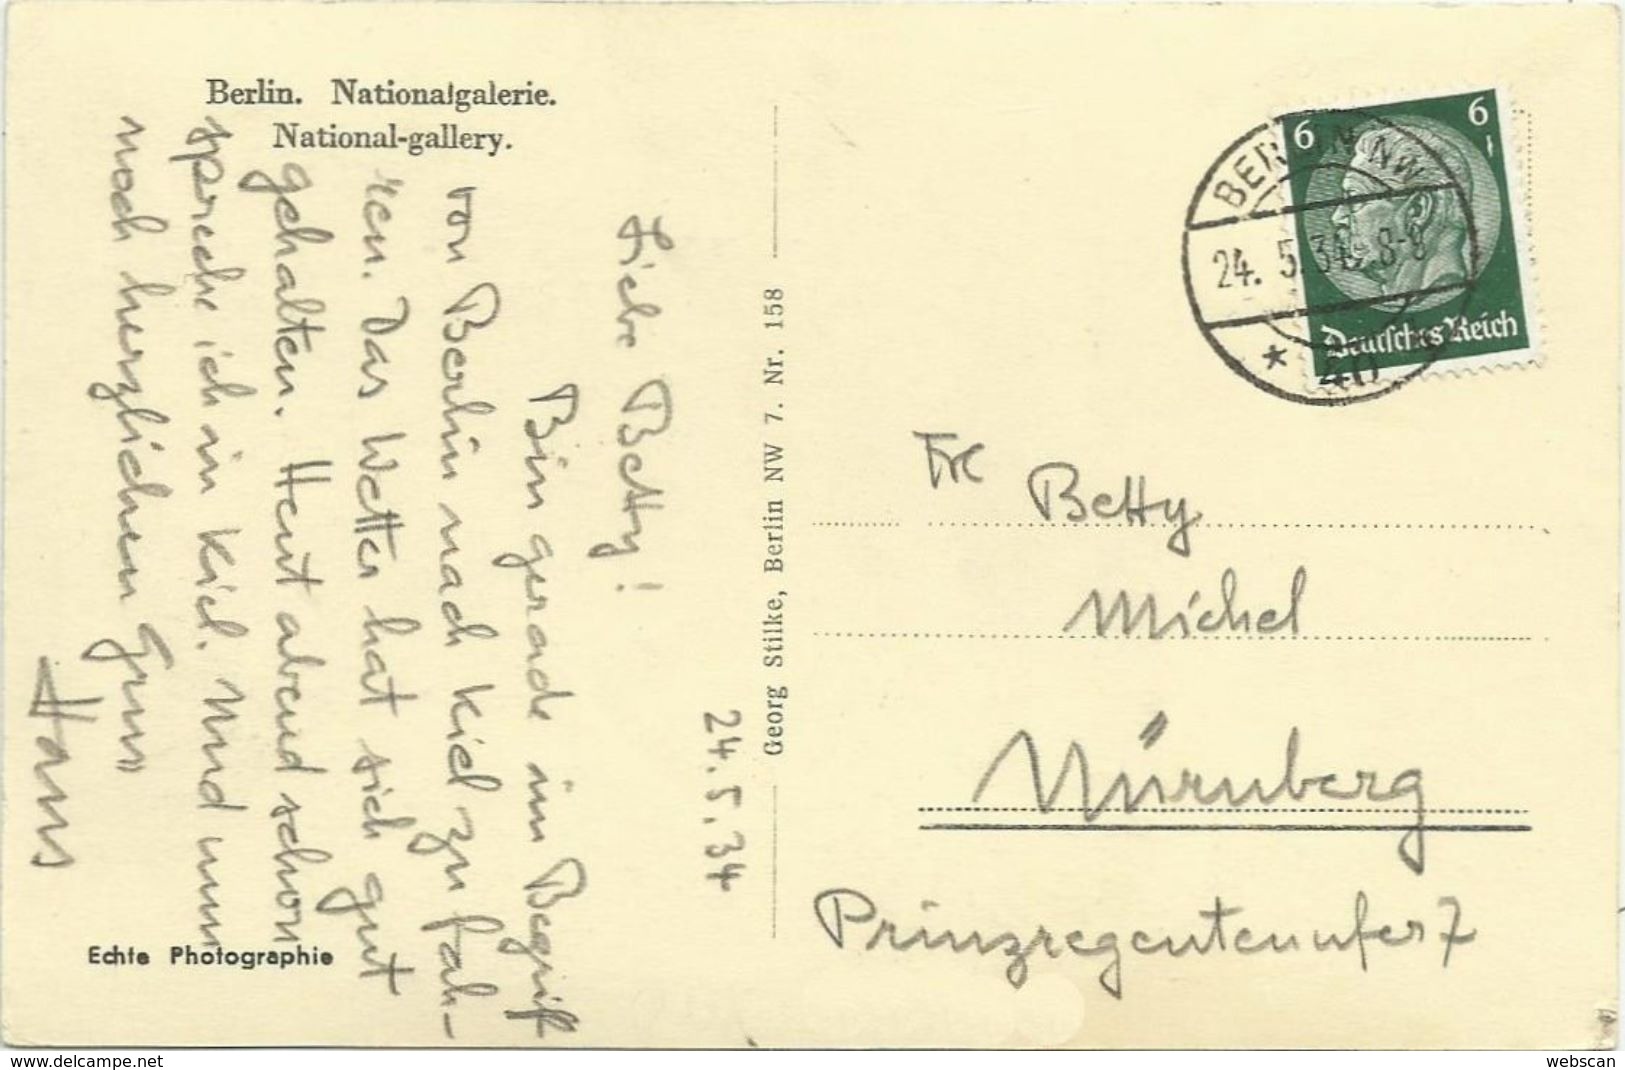 Berlin. Nationalgalerie.
National-gallery.
24.5.34
Liebe Betty!
Bin gerade im Begriff
von Berlin nach Kiel zu fah-
ren. Das Wetter hat sich gut
gehalten. Heut abend schon
spreche ich in Kiel. Und nun
noch herzlichen Gruss
Hans
Echte Photographie
Georg Stilke, Berlin NW 7. Nr. 158
BERLIN NW
24. 5. 34. 8-8
* 40
6 6
Deutsches Reich
Frl
Betty
Michel
Nürnberg
Prinzregentenufer 7
www.delcampe.net
webscan